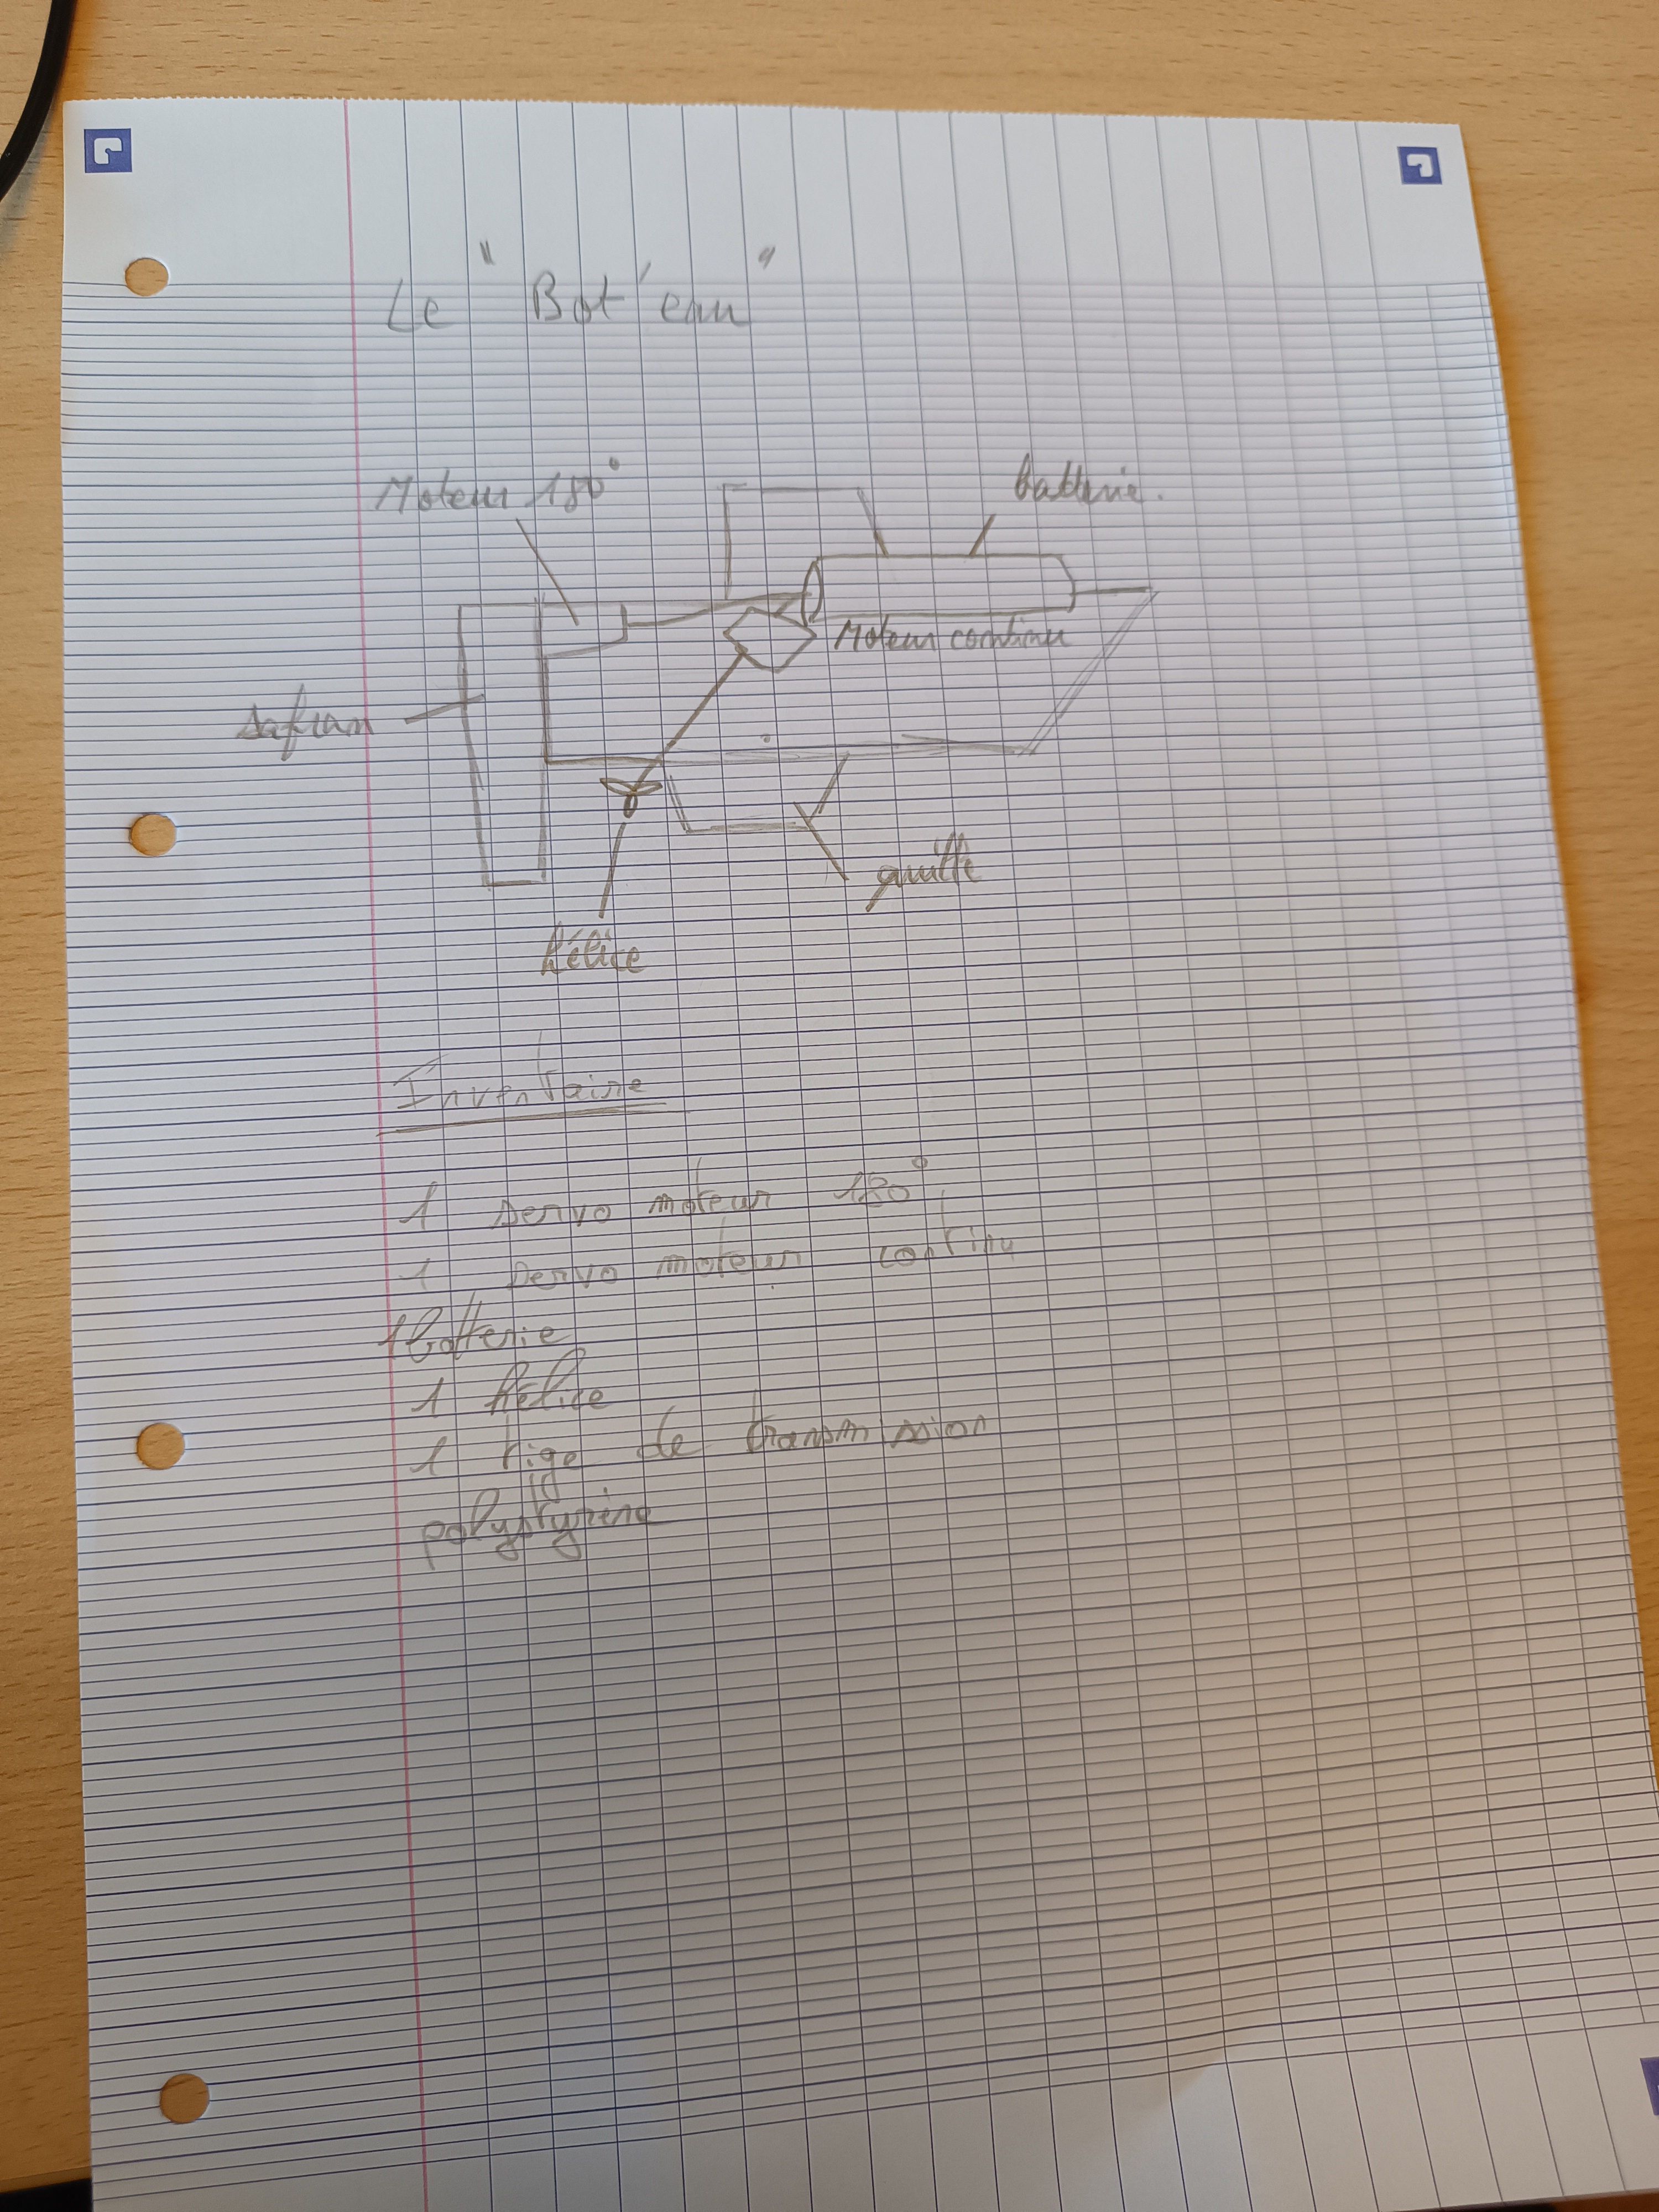 Le "Bot'eau"
Moteur 180°
batterie.
Moteur continu
safran
quille
hélice
Inventaire
1 servo moteur 180°
1 servo moteur continu
1 batterie
1 hélice
1 tige de transmission
polystyrène